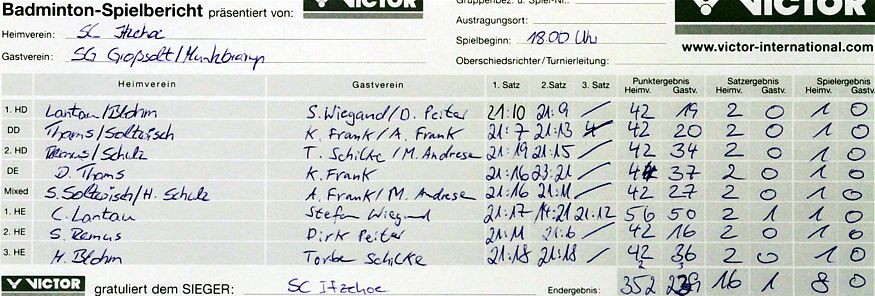 Badminton-Spielbericht präsentiert von: VICTOR Gruppenbez. u. Spiel-Nr.: VICTOR
Austragungsort:
Heimverein: SC Itzehoe Spielbeginn: 18.00 Uhr
Gastverein: SG Großsolt/Munkbrarup Oberschiedsrichter/Turnierleitung: www.victor-international.com
Heimverein Gastverein 1. Satz 2. Satz 3. Satz Punktergebnis Heimv. Gastv. Satzergebnis Heimv. Gastv. Spielergebnis Heimv. Gastv.
1. HD Lantau/Blohm S. Wiegand/D. Peiter 21:10 21:9 / 42 19 2 0 1 0
DD Thams/Soltwisch K. Frank/A. Frank 21:7 21:13 42 20 2 0 1 0
2. HD Remus/Schulz T. Schilke/M. Andresen 21:19 21:15 / 42 34 2 0 1 0
DE D. Thams K. Frank 21:16 23:21 / 37 2 0 1 0
Mixed S. Soltwisch/H. Schulz A. Frank/M. Andresen 21:16 21:11 / 42 27 2 0 1 0
1. HE C. Lantau Stefan Wiegand 21:17 14:21 21:12 56 50 2 1 1 0
2. HE S. Remus Dirk Peiter 21:11 21:6 / 42 16 2 0 1 0
3. HE M. Blohm Torben Schilke 21:18 21:18 / 42 36 2 0 1 0
VICTOR gratuliert dem SIEGER: SC Itzehoe Endergebnis: 352 16 1 8 0